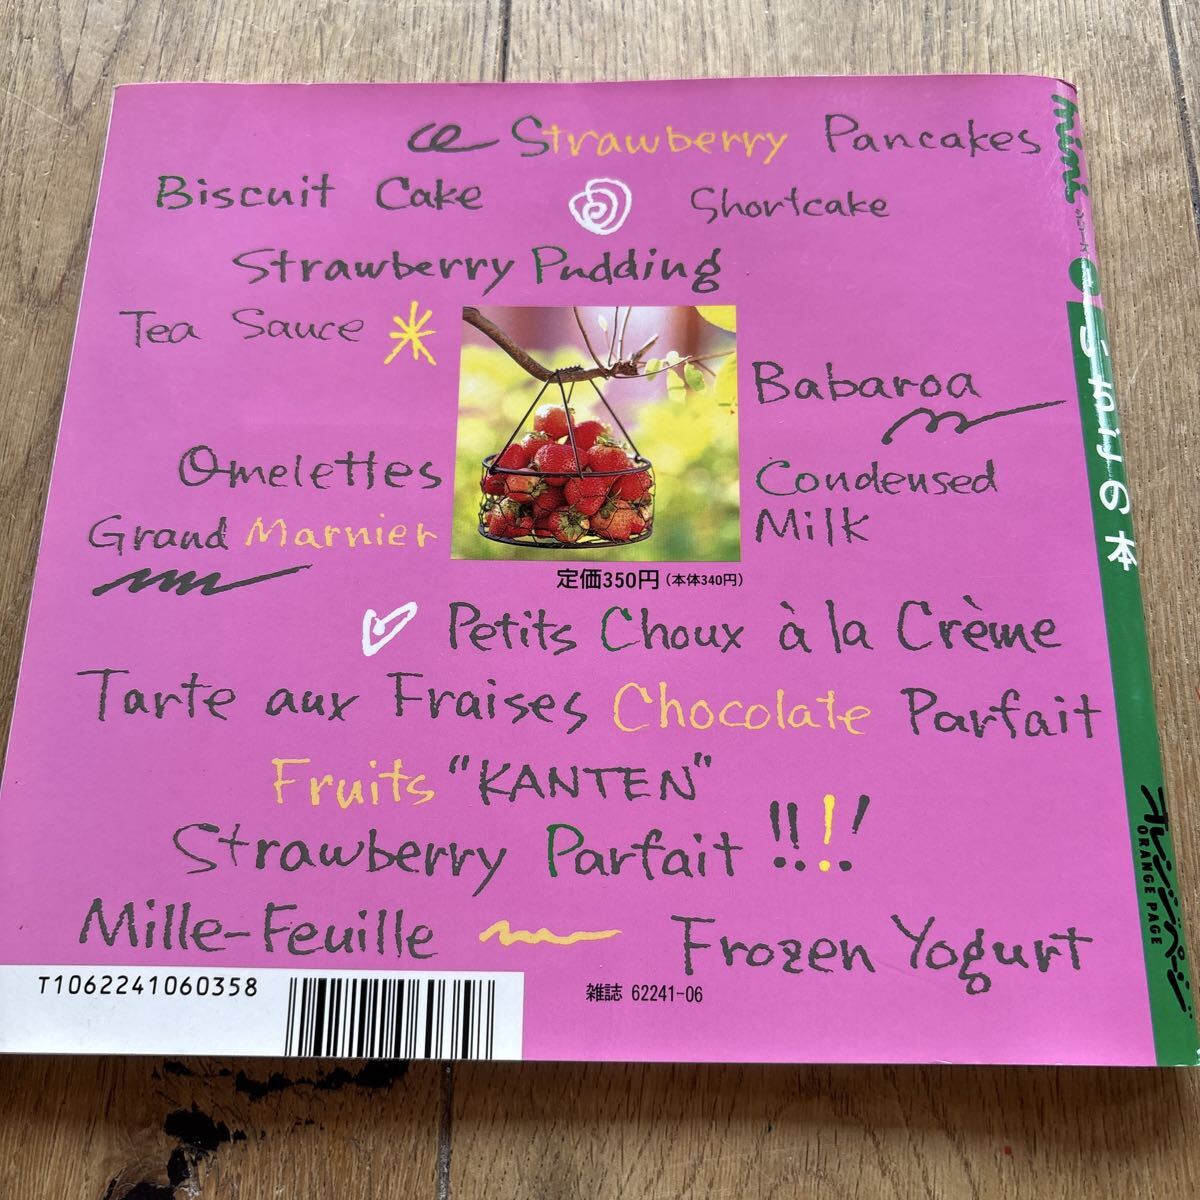 Strawberry Pancakes
Biscuit Cake
Shortcake
Strawberry Pudding
Tea Sauce
Babaroa
Omelettes
Condensed
Milk
Grand Marnier
定価350円(本体340円)
Petits Choux à la Crème
Tarte aux Fraises Chocolate Parfait
Fruits "KANTEN"
Strawberry Parfait !!!!
Mille-Feuille
Frozen Yogurt
T1062241060358
雑誌 62241-06
mini
シリーズ
いちごの本
オレンジページ
ORANGE PAGE